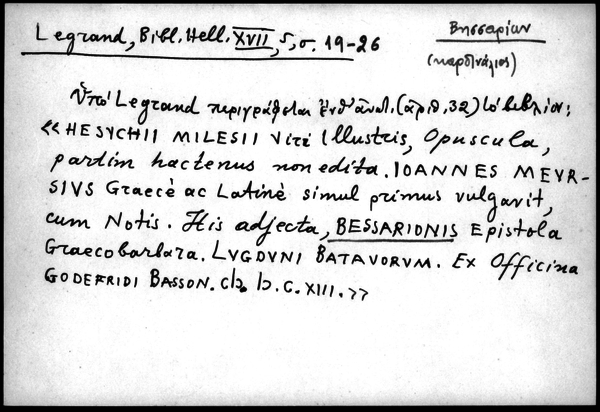 Legrand, Bibl. Hell. XVII, 5, σ. 19-26
Βησσαρίων
(καρδινάλιος)
Ὑπό Legrand περιγράφεται ἐνθ' ἀνωτ. (ἀριθ. 32) τό βιβλίον:
«HESYCHII MILESII Viri Illustris, Opuscula,
partim hactenus non edita. IOANNES MEVR-
SIVS Graecè ac Latinè simul primus vulgavit,
cum Notis. His adjecta, BESSARIONIS Epistola
Graecobarbara. LVGDVNI BATAVORVM. Ex Officina
GODEFRIDI BASSON. cIɔ. Iɔ. C. XIII.»